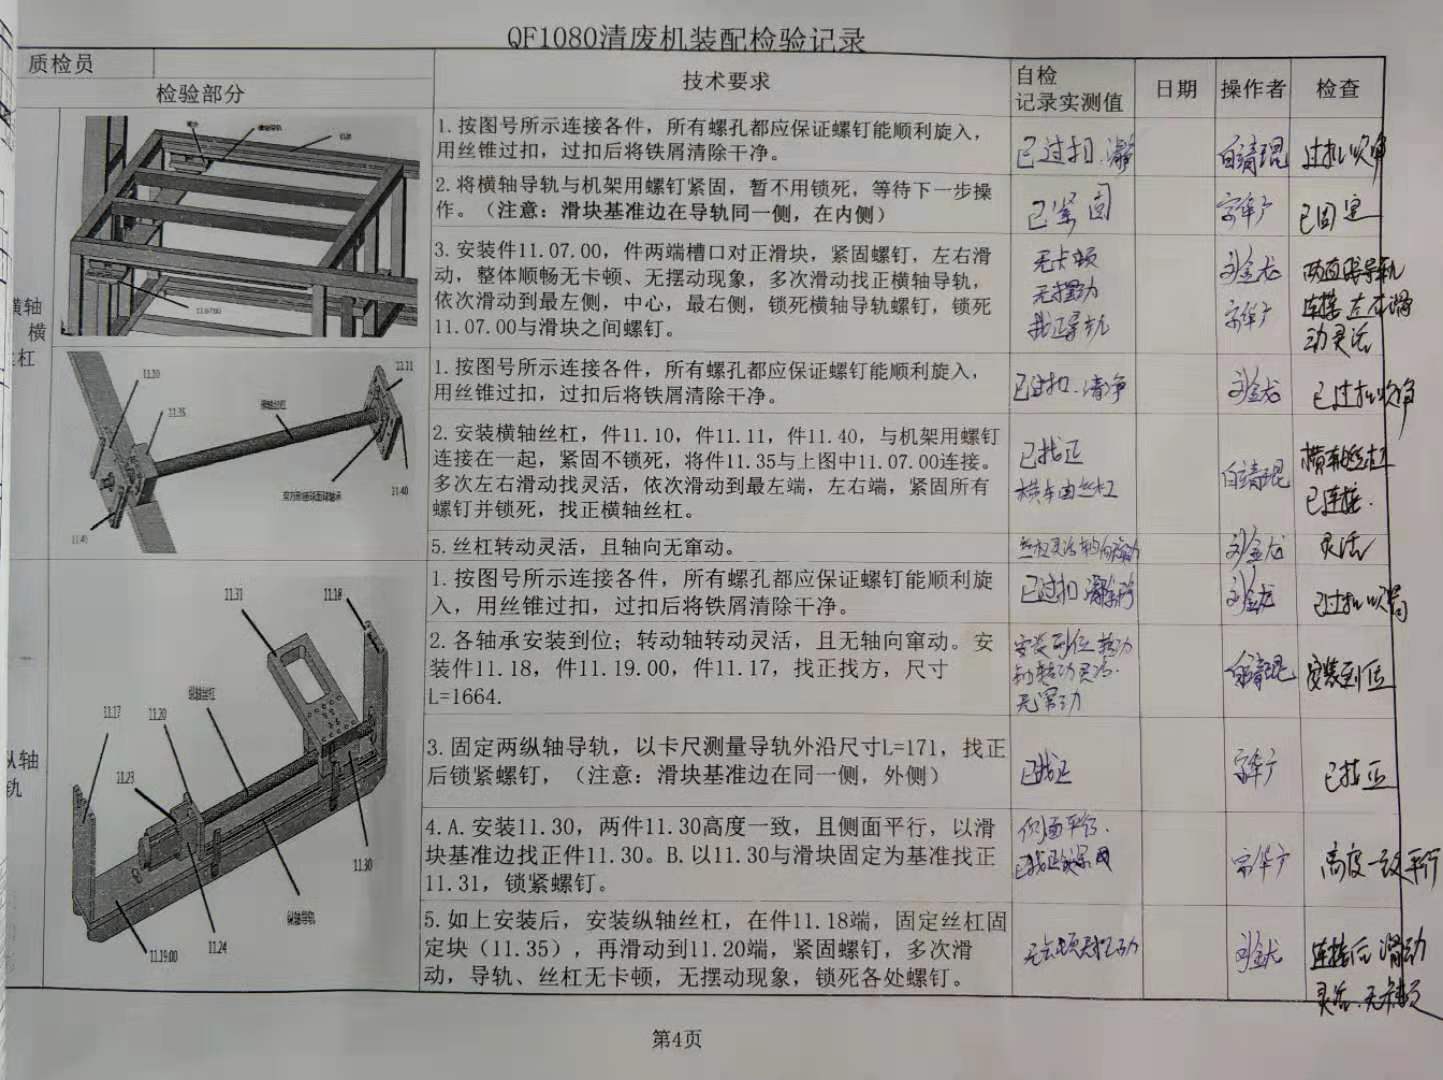 QF1080清废机装配检验记录
质检员
检验部分
技术要求
自检
记录实测值
日期
操作者
检查
横轴
横
丝杠
11.07.00
1.按图号所示连接各件，所有螺孔都应保证螺钉能顺利旋入，
用丝锥过扣，过扣后将铁屑清除干净。
已过扣
白清琨
2.将横轴导轨与机架用螺钉紧固，暂不用锁死，等待下一步操
作。（注意：滑块基准边在导轨同一侧，在内侧）
已紧固
已固定
3.安装件11.07.00，件两端槽口对正滑块，紧固螺钉，左右滑
动，整体顺畅无卡顿、无摆动现象，多次滑动找正横轴导轨，
依次滑动到最左侧，中心，最右侧，锁死横轴导轨螺钉，锁死
11.07.00与滑块之间螺钉。
无卡顿
无摆动
找正导轨
刘金龙
连接左右滑
动灵活
11.10
11.11
11.35
横轴丝杠
11.40
11.41
1.按图号所示连接各件，所有螺孔都应保证螺钉能顺利旋入，
用丝锥过扣，过扣后将铁屑清除干净。
已过扣.清净
刘金龙
2.安装横轴丝杠，件11.10，件11.11，件11.40，与机架用螺钉
连接在一起，紧固不锁死，将件11.35与上图中11.07.00连接。
多次左右滑动找灵活，依次滑动到最左端，左右端，紧固所有
螺钉并锁死，找正横轴丝杠。
已找正
横轴丝杠
白清琨
横轴丝杠
已连接.
5.丝杠转动灵活，且轴向无窜动。
刘金龙
灵活
纵轴
轨
11.31
11.18
纵轴丝杠
11.17
11.20
11.23
11.30
纵轴导轨
11.24
11.19.00
1.按图号所示连接各件，所有螺孔都应保证螺钉能顺利旋
入，用丝锥过扣，过扣后将铁屑清除干净。
已过扣
刘金龙
2.各轴承安装到位；转动轴转动灵活，且无轴向窜动。安
装件11.18，件11.19.00，件11.17，找正找方，尺寸
L=1664.
安装到位 转动
轴转动灵活.
无窜动
白清琨
安装到位
3.固定两纵轴导轨，以卡尺测量导轨外沿尺寸L=171，找正
后锁紧螺钉，（注意：滑块基准边在同一侧，外侧）
已找正
已找正
4.A.安装11.30，两件11.30高度一致，且侧面平行，以滑
块基准边找正件11.30。B.以11.30与滑块固定为基准找正
11.31，锁紧螺钉。
侧面平行.
高度一致平行
5.如上安装后，安装纵轴丝杠，在件11.18端，固定丝杠固
定块（11.35），再滑动到11.20端，紧固螺钉，多次滑
动，导轨、丝杠无卡顿，无摆动现象，锁死各处螺钉。
无卡顿无摆动
刘金龙
连接后滑动
灵活.无卡顿
第4页